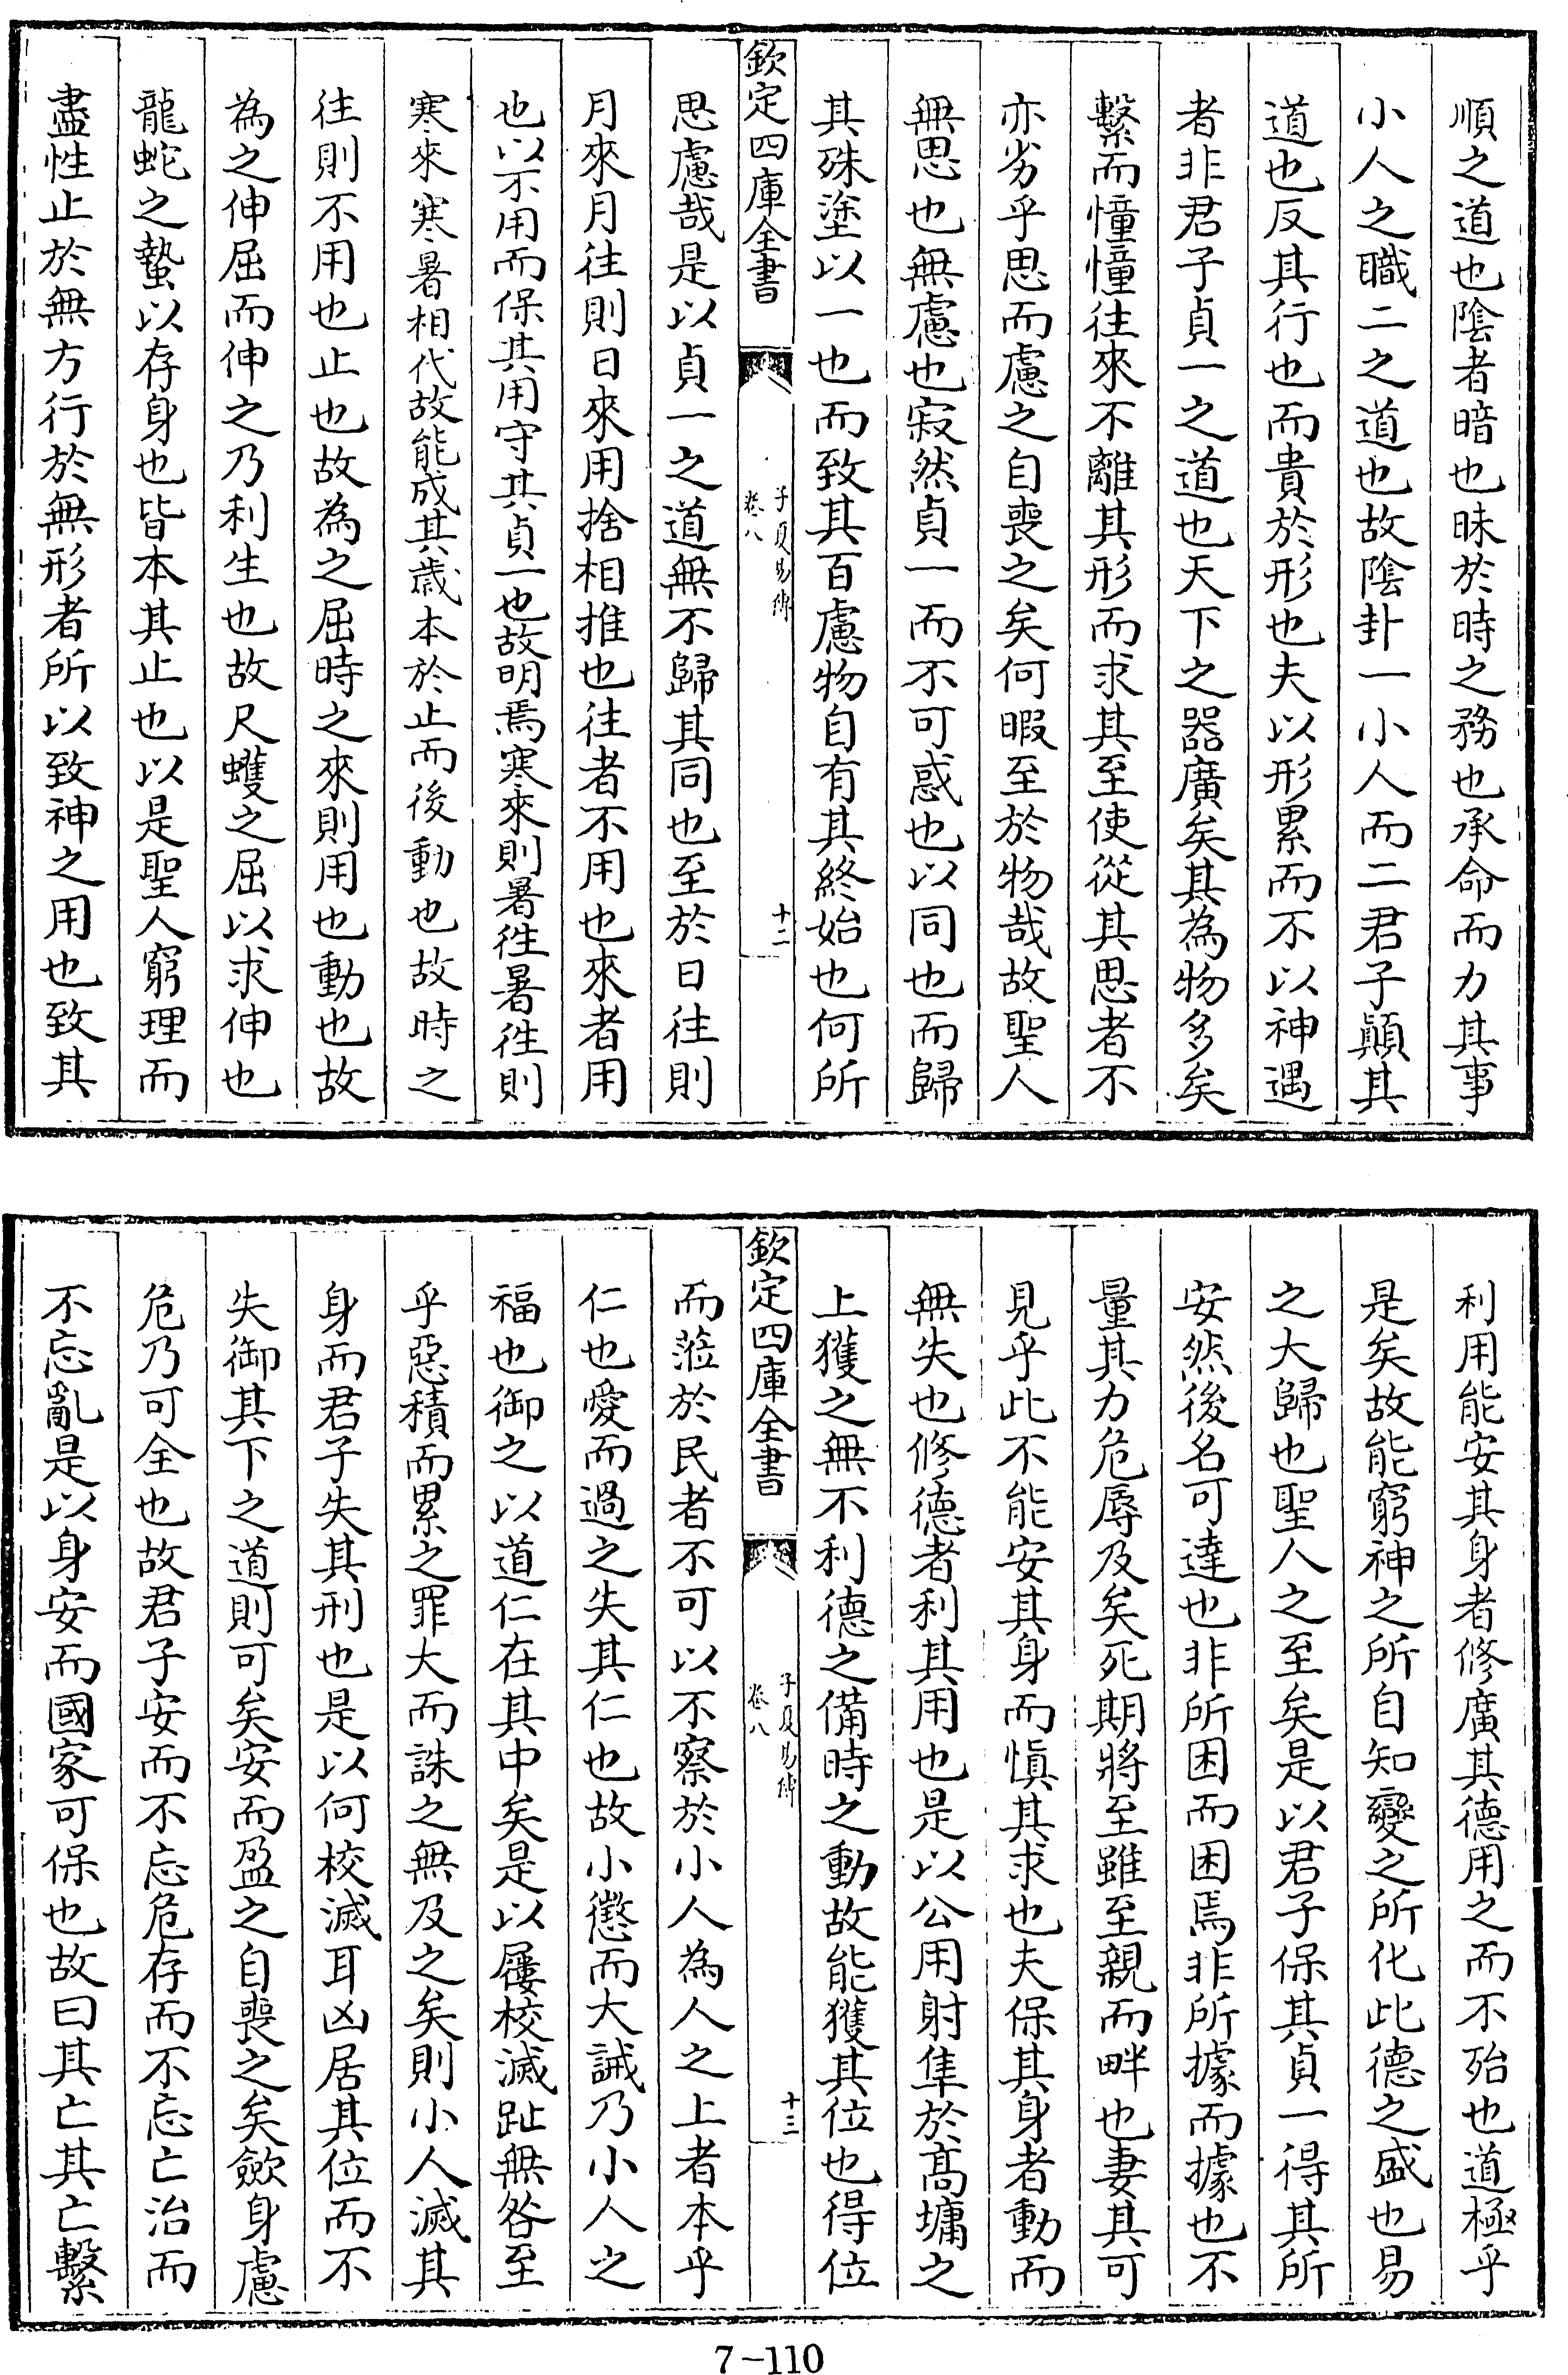 順之道也陰者暗也昧於時之務也承命而力其事
小人之職二之道也故陰卦一小人而二君子顛其
道也反其行也而貴於形也夫以形累而不以神遇
者非君子貞一之道也天下之器廣矣其為物多矣
繫而憧憧往來不離其形而求其至使從其思者不
亦劣乎思而慮之自喪之矣何暇至於物哉故聖人
無思也無慮也寂然貞一而不可惑也以同也而歸
其殊塗以一也而致其百慮物自有其終始也何所
欽定四庫全書
子夏易傳
卷八
十二
思慮哉是以貞一之道無不歸其同也至於日往則
月來月往則日來用捨相推也往者不用也來者用
也以不用而保其用守其貞一也故明焉寒來則暑徃暑徃則
寒來寒暑相代故能成其歲本於止而後動也故時之
往則不用也止也故為之屈時之來則用也動也故
為之伸屈而伸之乃利生也故尺蠖之屈以求伸也
龍蛇之蟄以存身也皆本其止也以是聖人窮理而
盡性止於無方行於無形者所以致神之用也致其
利用能安其身者修廣其德用之而不殆也道極乎
是矣故能窮神之所自知變之所化此德之盛也易
之大歸也聖人之至矣是以君子保其貞一得其所
安然後名可達也非所困而困焉非所據而據也不
量其力危辱及矣死期將至雖至親而畔也妻其可
見乎此不能安其身而慎其求也夫保其身者動而
無失也修德者利其用也是以公用射隼於高墉之
上獲之無不利德之備時之動故能獲其位也得位
欽定四庫全書
子夏易傳
卷八
十三
而蒞於民者不可以不察於小人為人之上者本乎
仁也愛而過之失其仁也故小懲而大誡乃小人之
福也御之以道仁在其中矣是以屨校滅趾無咎至
乎惡積而累之罪大而誅之無及之矣則小人滅其
身而君子失其刑也是以何校滅耳凶居其位而不
失御其下之道則可矣安而盈之自喪之矣歛身慮
危乃可全也故君子安而不忘危存而不忘亡治而
不忘亂是以身安而國家可保也故曰其亡其亡繫
7-110